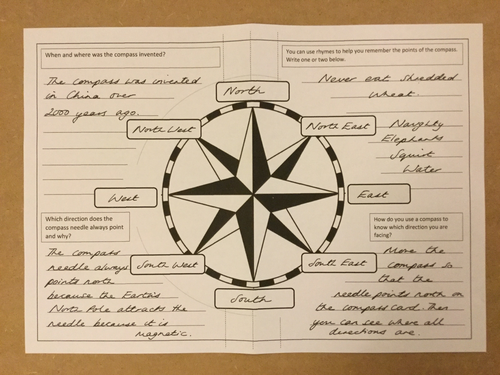 When and where was the compass invented?
The compass was invented
in China over
2000 years ago.
You can use rhymes to help you remember the points of the compass.
Write one or two below.
Never eat Shredded
Wheat.
Naughty
Elephants
Squirt
Water
North
North West
North East
West
East
South West
South East
South
Which direction does the
compass needle always point
and why?
The compass
needle always
points north
because the Earth's
North Pole attracts the
needle because it is
magnetic.
How do you use a compass to
know which direction you are
facing?
Move the
compass so
that the
needle points north on
the compass card. Then
you can see where all
directions are.